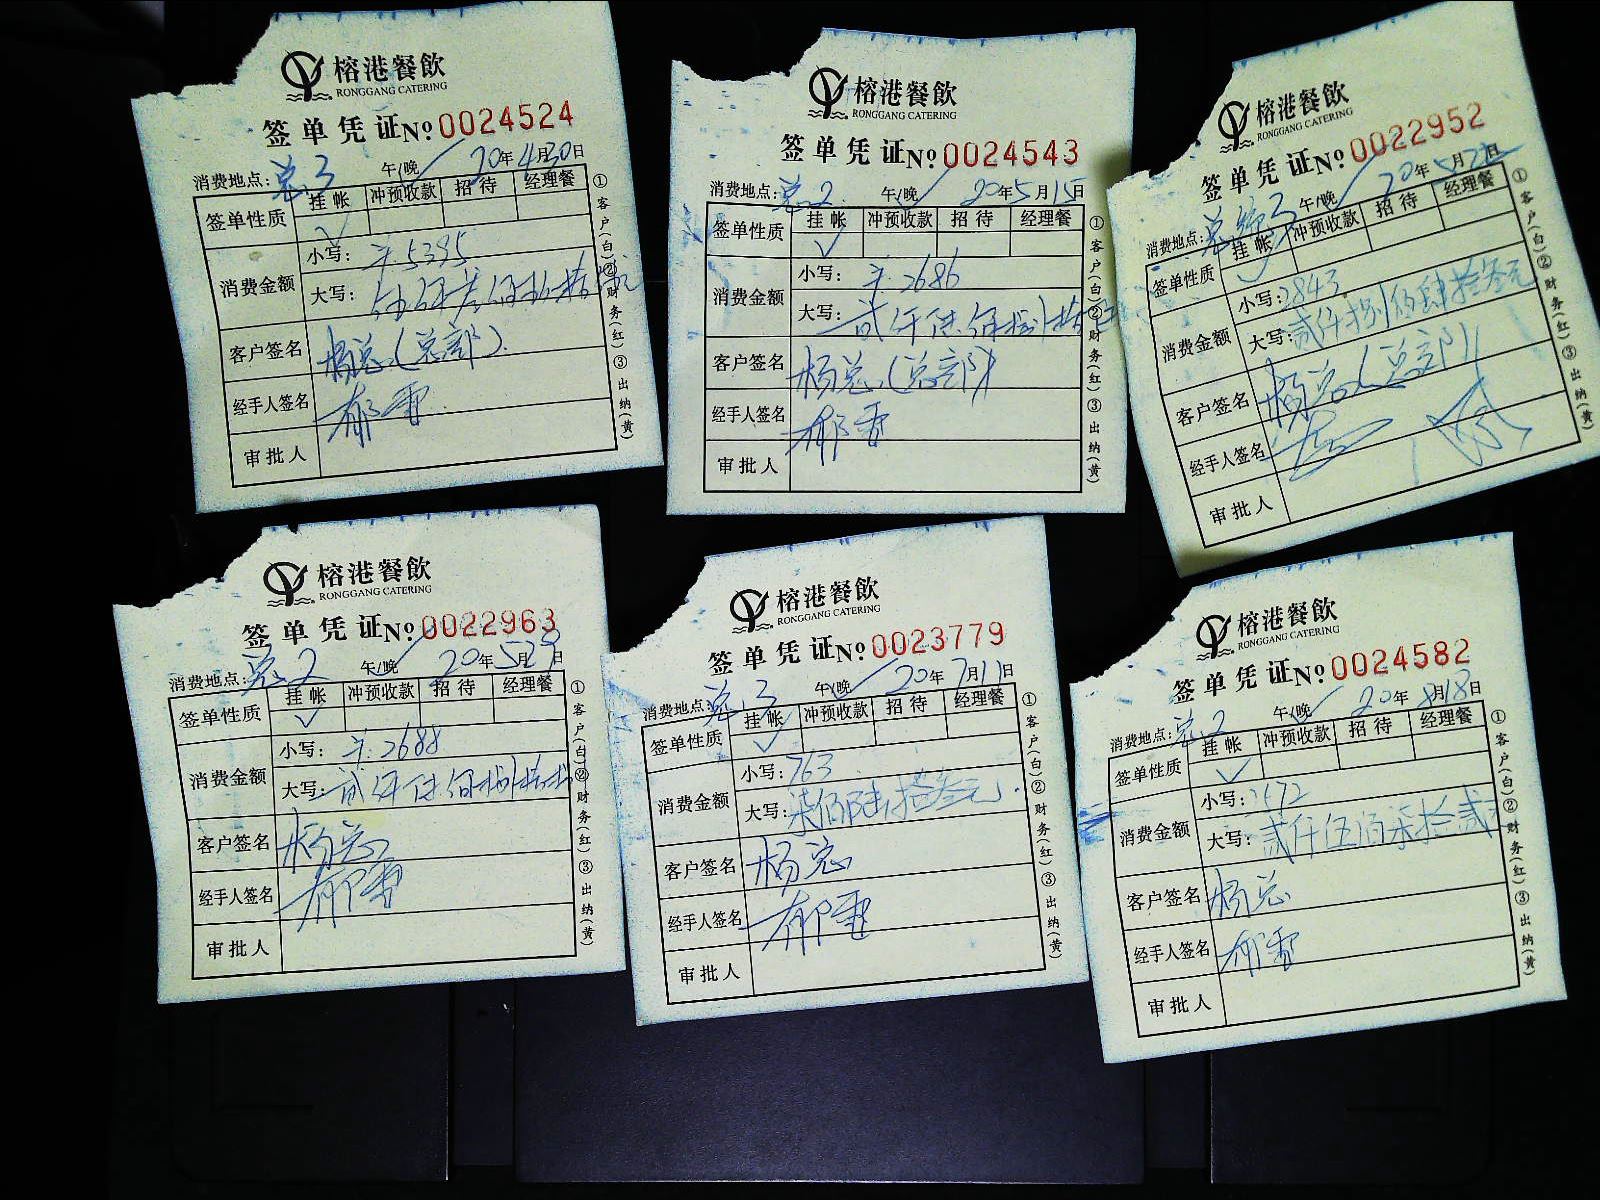 榕港餐飲
RONGGANG CATERING
签单凭证 №0024524
消费地点：总3 午/晚✓ 20年4月30日
签单性质 挂帐 冲预收款 招待 经理餐
✓
消费金额 小写：5395
大写：伍仟叁佰玖拾伍元
客户签名 杨总（总部）
经手人签名 郁雷
审批人
①客户(白)②财务(红)③出纳(黄)
榕港餐飲
RONGGANG CATERING
签单凭证 №0024543
消费地点：总2 午/晚✓ 20年5月15日
签单性质 挂帐 冲预收款 招待 经理餐
✓
消费金额 小写：2686
大写：贰仟陆佰捌拾
客户签名 杨总（总部）
经手人签名 郁雷
审批人
①客户(白)②财务(红)③出纳(黄)
榕港餐飲
RONGGANG CATERING
签单凭证 №0022952
消费地点：总 3 午/晚✓ 20年5月 日
签单性质 挂帐 冲预收款 招待 经理餐
✓
消费金额 小写：2843
大写：贰仟捌佰肆拾叁元
客户签名 杨总（总部）
经手人签名
审批人
①客户(白)②财务(红)③出纳(黄)
榕港餐飲
RONGGANG CATERING
签单凭证 №0022963
消费地点：总2 午/晚✓ 20年5月 日
签单性质 挂帐 冲预收款 招待 经理餐
✓
消费金额 小写：2688
大写：贰仟陆佰捌拾捌
客户签名 杨总
经手人签名 郁雷
审批人
①客户(白)②财务(红)③出纳(黄)
榕港餐飲
RONGGANG CATERING
签单凭证 №0023779
消费地点：总3 午/晚✓ 20年7月11日
签单性质 挂帐 冲预收款 招待 经理餐
✓
消费金额 小写：763
大写：柒佰陆拾叁元
客户签名 杨总
经手人签名 郁雷
审批人
①客户(白)②财务(红)③出纳(黄)
榕港餐飲
RONGGANG CATERING
签单凭证 №0024582
消费地点：总2 午/晚✓ 20年8月18日
签单性质 挂帐 冲预收款 招待 经理餐
✓
消费金额 小写：2572
大写：贰仟伍佰柒拾贰
客户签名 杨总
经手人签名 郁雷
审批人
①客户(白)②财务(红)③出纳(黄)